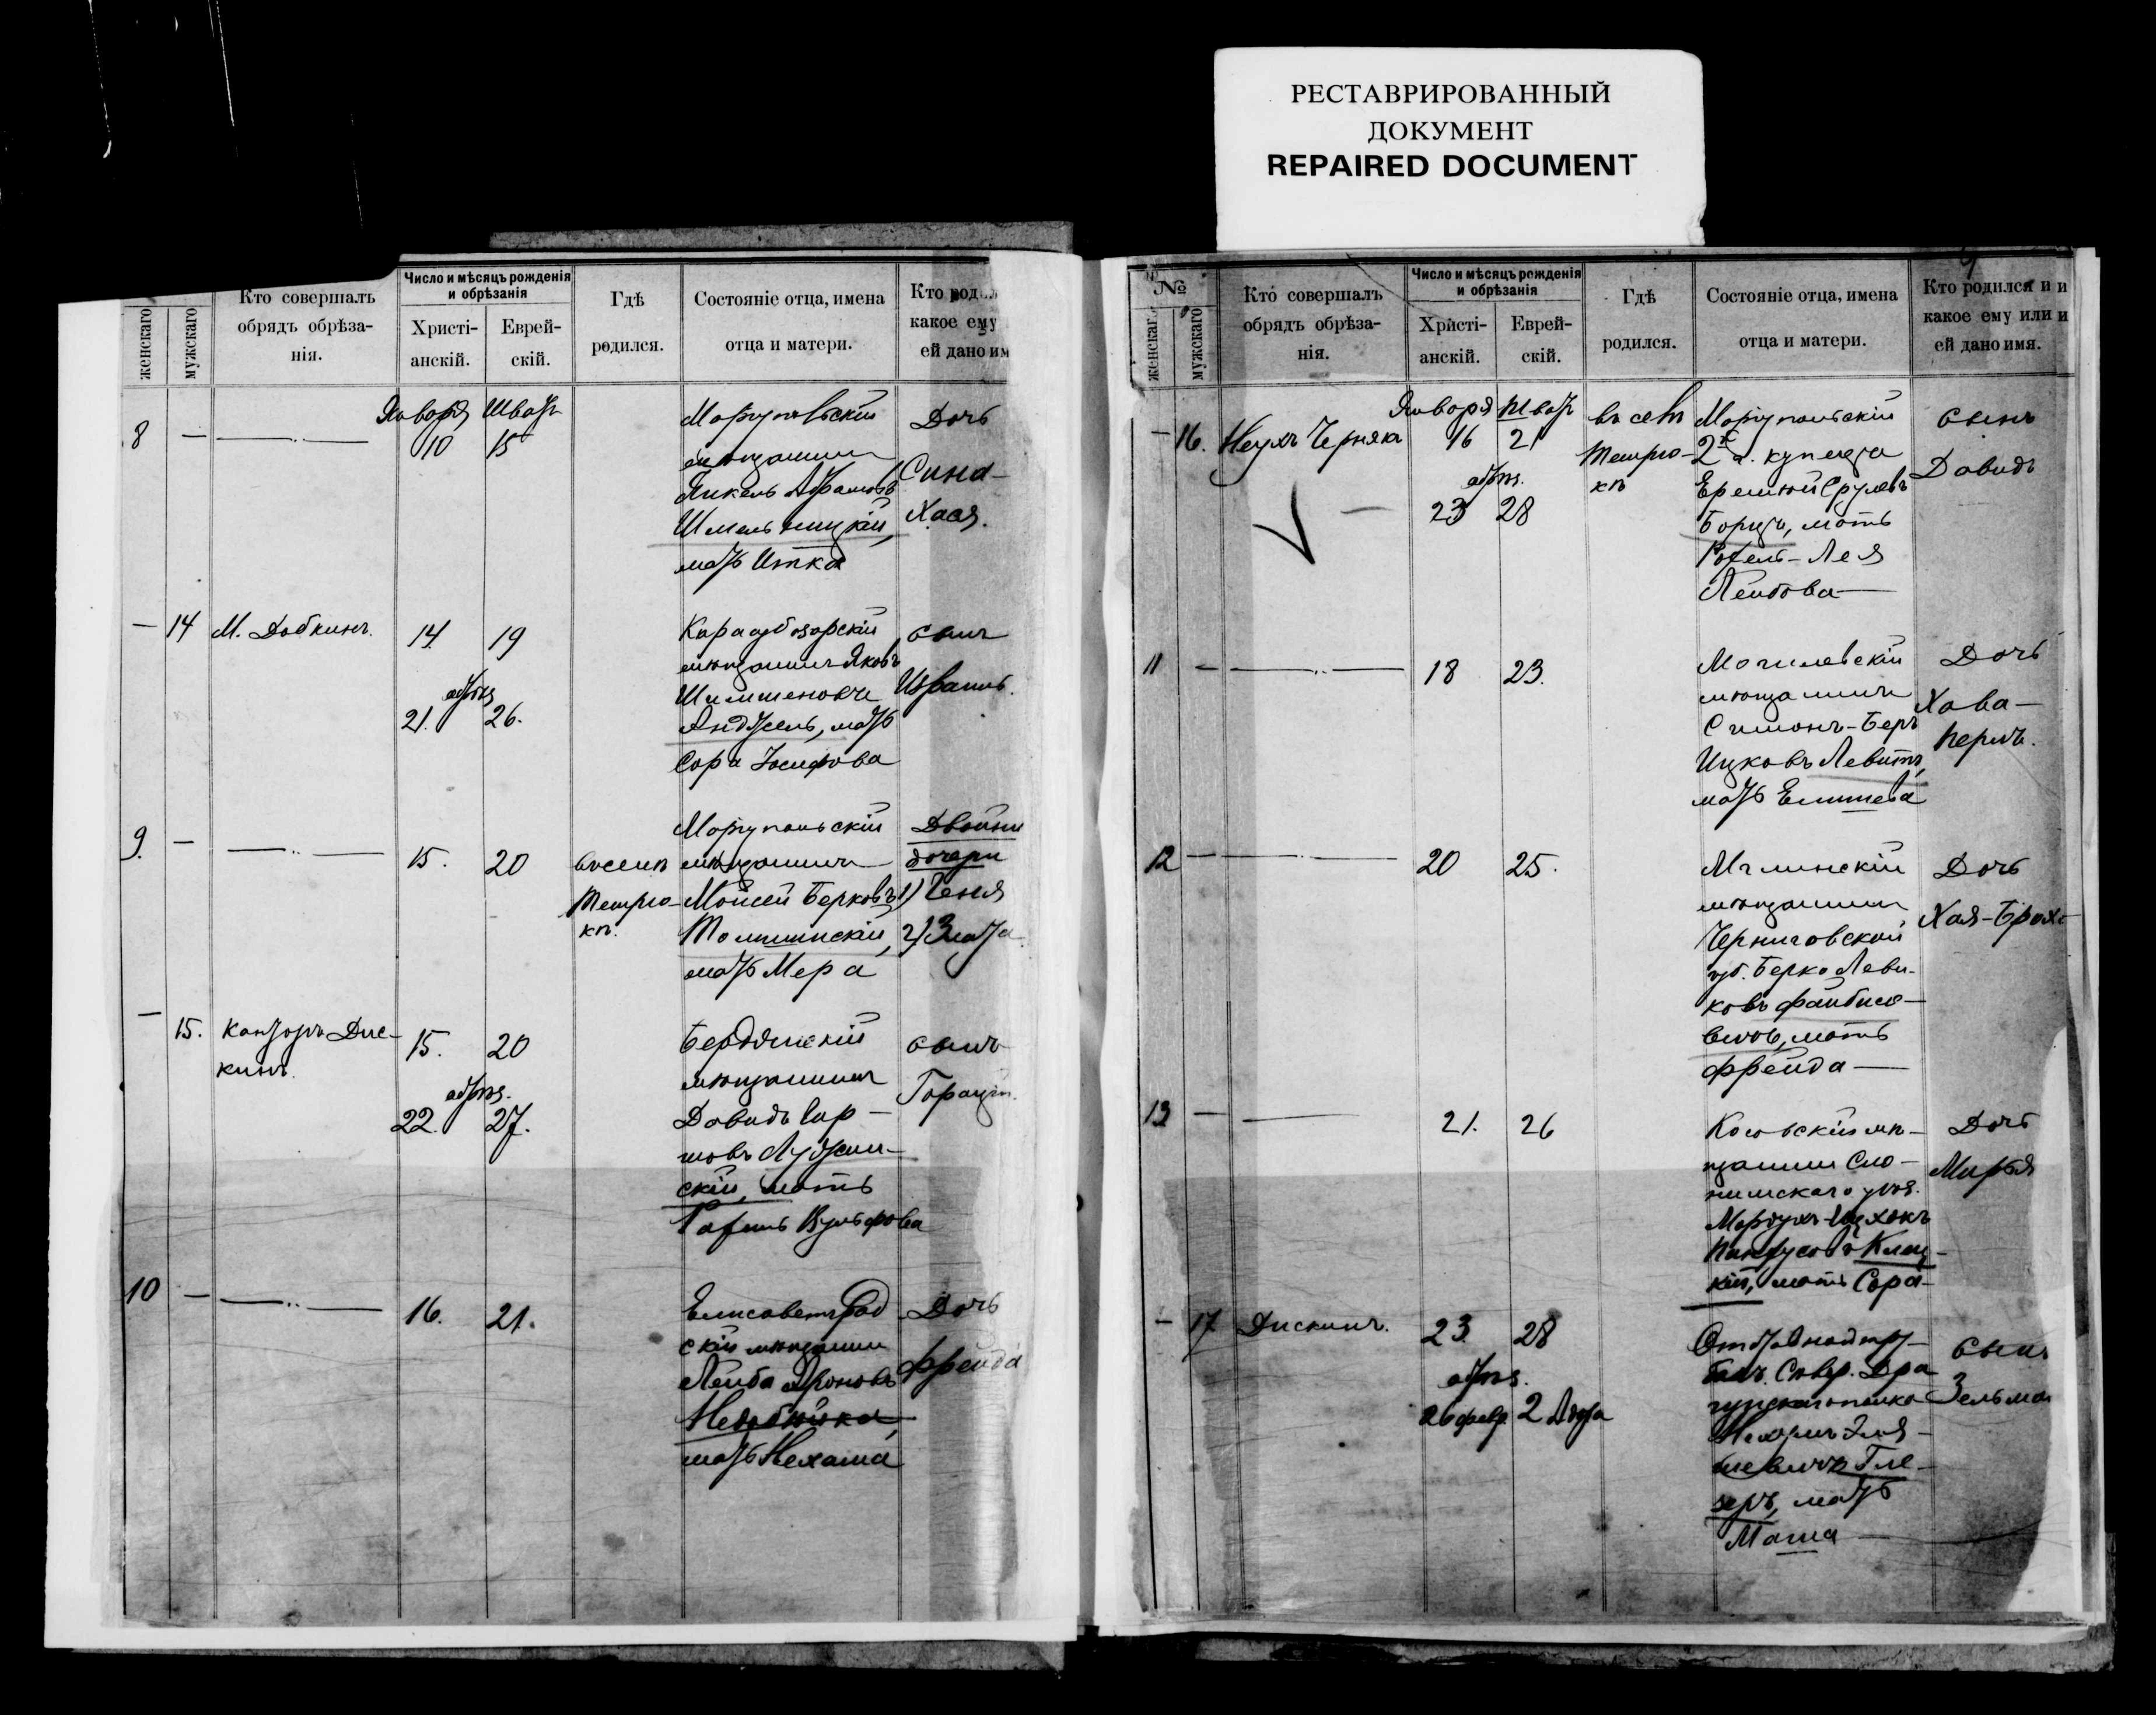 РЕСТАВРИРОВАННЫЙ
ДОКУМЕНТ
REPAIRED DOCUMENT
женскаго
мужскаго
Кто совершалъ
обрядъ обрѣза-
нія.
Число и мѣсяцъ рожденія
и обрѣзанія
Христі-
анскій.
Еврей-
скій.
Гдѣ
родился.
Состояніе отца, имена
отца и матери.
Кто род
какое ему
ей дано им
8 —
Января Шват
10 15
Маріупольскій
мѣщанинъ
Янкель Абрамовъ
Шмельницкій,
мать Итка
Дочь
Сима-
Хася.
— 14 М. Добкинъ.
14. 19
обрѣз.
21. 26.
Карасубазарскій
мѣщанинъ Яковъ
Шимшеновъ
Андусель, мать
Сора Іосифова
сынъ
Израиль.
9. —
15. 20
въ селѣ
Темрю-
кѣ.
Маріупольскій
мѣщанинъ
Мойсей Берковъ
Толчинскій,
мать Мера
Двойни
дочери
1) Геня
2) Злата
— 15. Канторъ Дис-
кинъ.
15. 20
обрѣз.
22. 27.
Бердянскій
мѣщанинъ
Давидъ
скій, мать
Рахиль Вульфова
сынъ
10 —
16. 21.
Елисаветград
скій мѣщанинъ
Лейба Ароновъ
мать Нехама
Дочь
Фрейда
№
женскаг.
мужскаго
Кто совершалъ
обрядъ обрѣза-
нія.
Число и мѣсяцъ рожденія
и обрѣзанія
Христі-
анскій.
Еврей-
скій.
Гдѣ
родился.
Состояніе отца, имена
отца и матери.
Кто родился и и
какое ему или и
ей дано имя.
— 16. Неухъ Чернякъ
Января Шват
16 21
обрѣз.
23 28
въ селѣ
Темрю-
кѣ
Маріупольскій
2й г. купецъ
Еремій Срулевъ
Борицъ, мать
Рохель-Лея
Лейбова
сынъ
Давидъ
11 —
18 23.
Могилевскій
мѣщанинъ
Симонъ-Беръ
Ицковъ Левитъ,
мать Елишева
Дочь
Хава-
Перль.
12 —
20 25.
Мглинскій
мѣщанинъ
Черниговской
губ. Берко Леви-
ковъ Файбисо-
вичъ, мать
Фрейда
Дочь
Хая-Броха
13 —
21. 26
Косовскій мѣ-
щанинъ Сло-
нимскаго уѣз.
Мордухъ-Ицхокъ
Пинхусовъ Клец-
кій, мать Сора
Дочь
Мирья
— 17 Дискинъ.
23. 28
обрѣз.
февр. 2 Адара
Сѣвер. Дра
гунскаго полка
Гле-
зеръ, мать
Маша
сынъ
Зельман